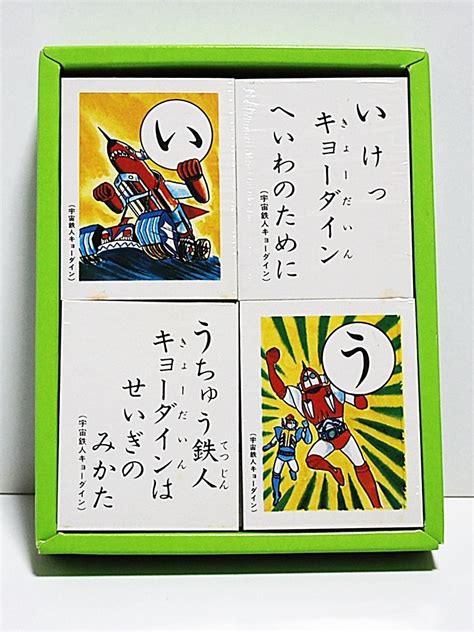 い
(宇宙鉄人キョーダイン)
いけっ
キョーダイン
きょーだいん
へいわのために
(宇宙鉄人キョーダイン)
うちゅう鉄人
てつじん
キョーダインは
きょーだいん
せいぎの
みかた
(宇宙鉄人キョーダイン)
う
(宇宙鉄人キョーダイン)